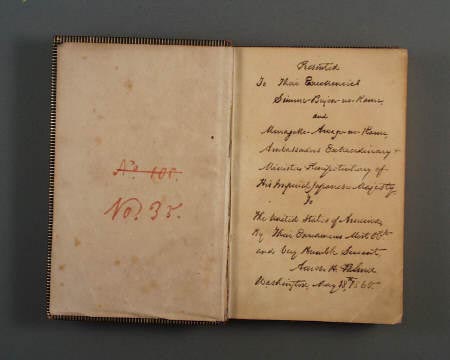 No 100.
No. 35.
Presented
To Their Excellencies
Simme Bujen-no-Kami,
and
Muragaki-Awaji-no-Kami,
Ambassadors Extraordinary &
Ministers Plenipotentiary of
His Imperial Japanese Majesty,
To
The United States of America,
By Their Excellencies Most Obt
and very Humble Servant,
Aaron H. Palmer
Washington, May 18th 1860.